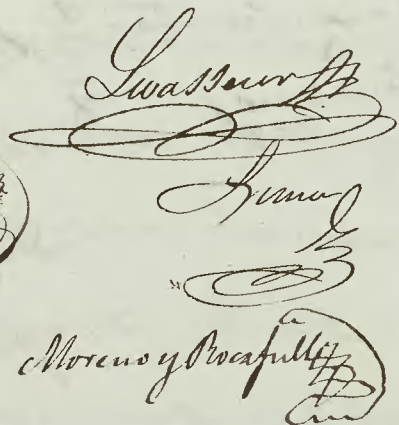 Levasseur
Lerma
Moreno y Rocafull